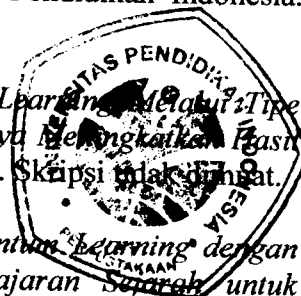 Pendidikan Indonesia.
Learning Melalui Tipe
Meningkatkan Hasil
. Skripsi tidak dimuat.
Learning dengan
ajaran Sejarah untuk
PENDIDIKAN INDONESIA